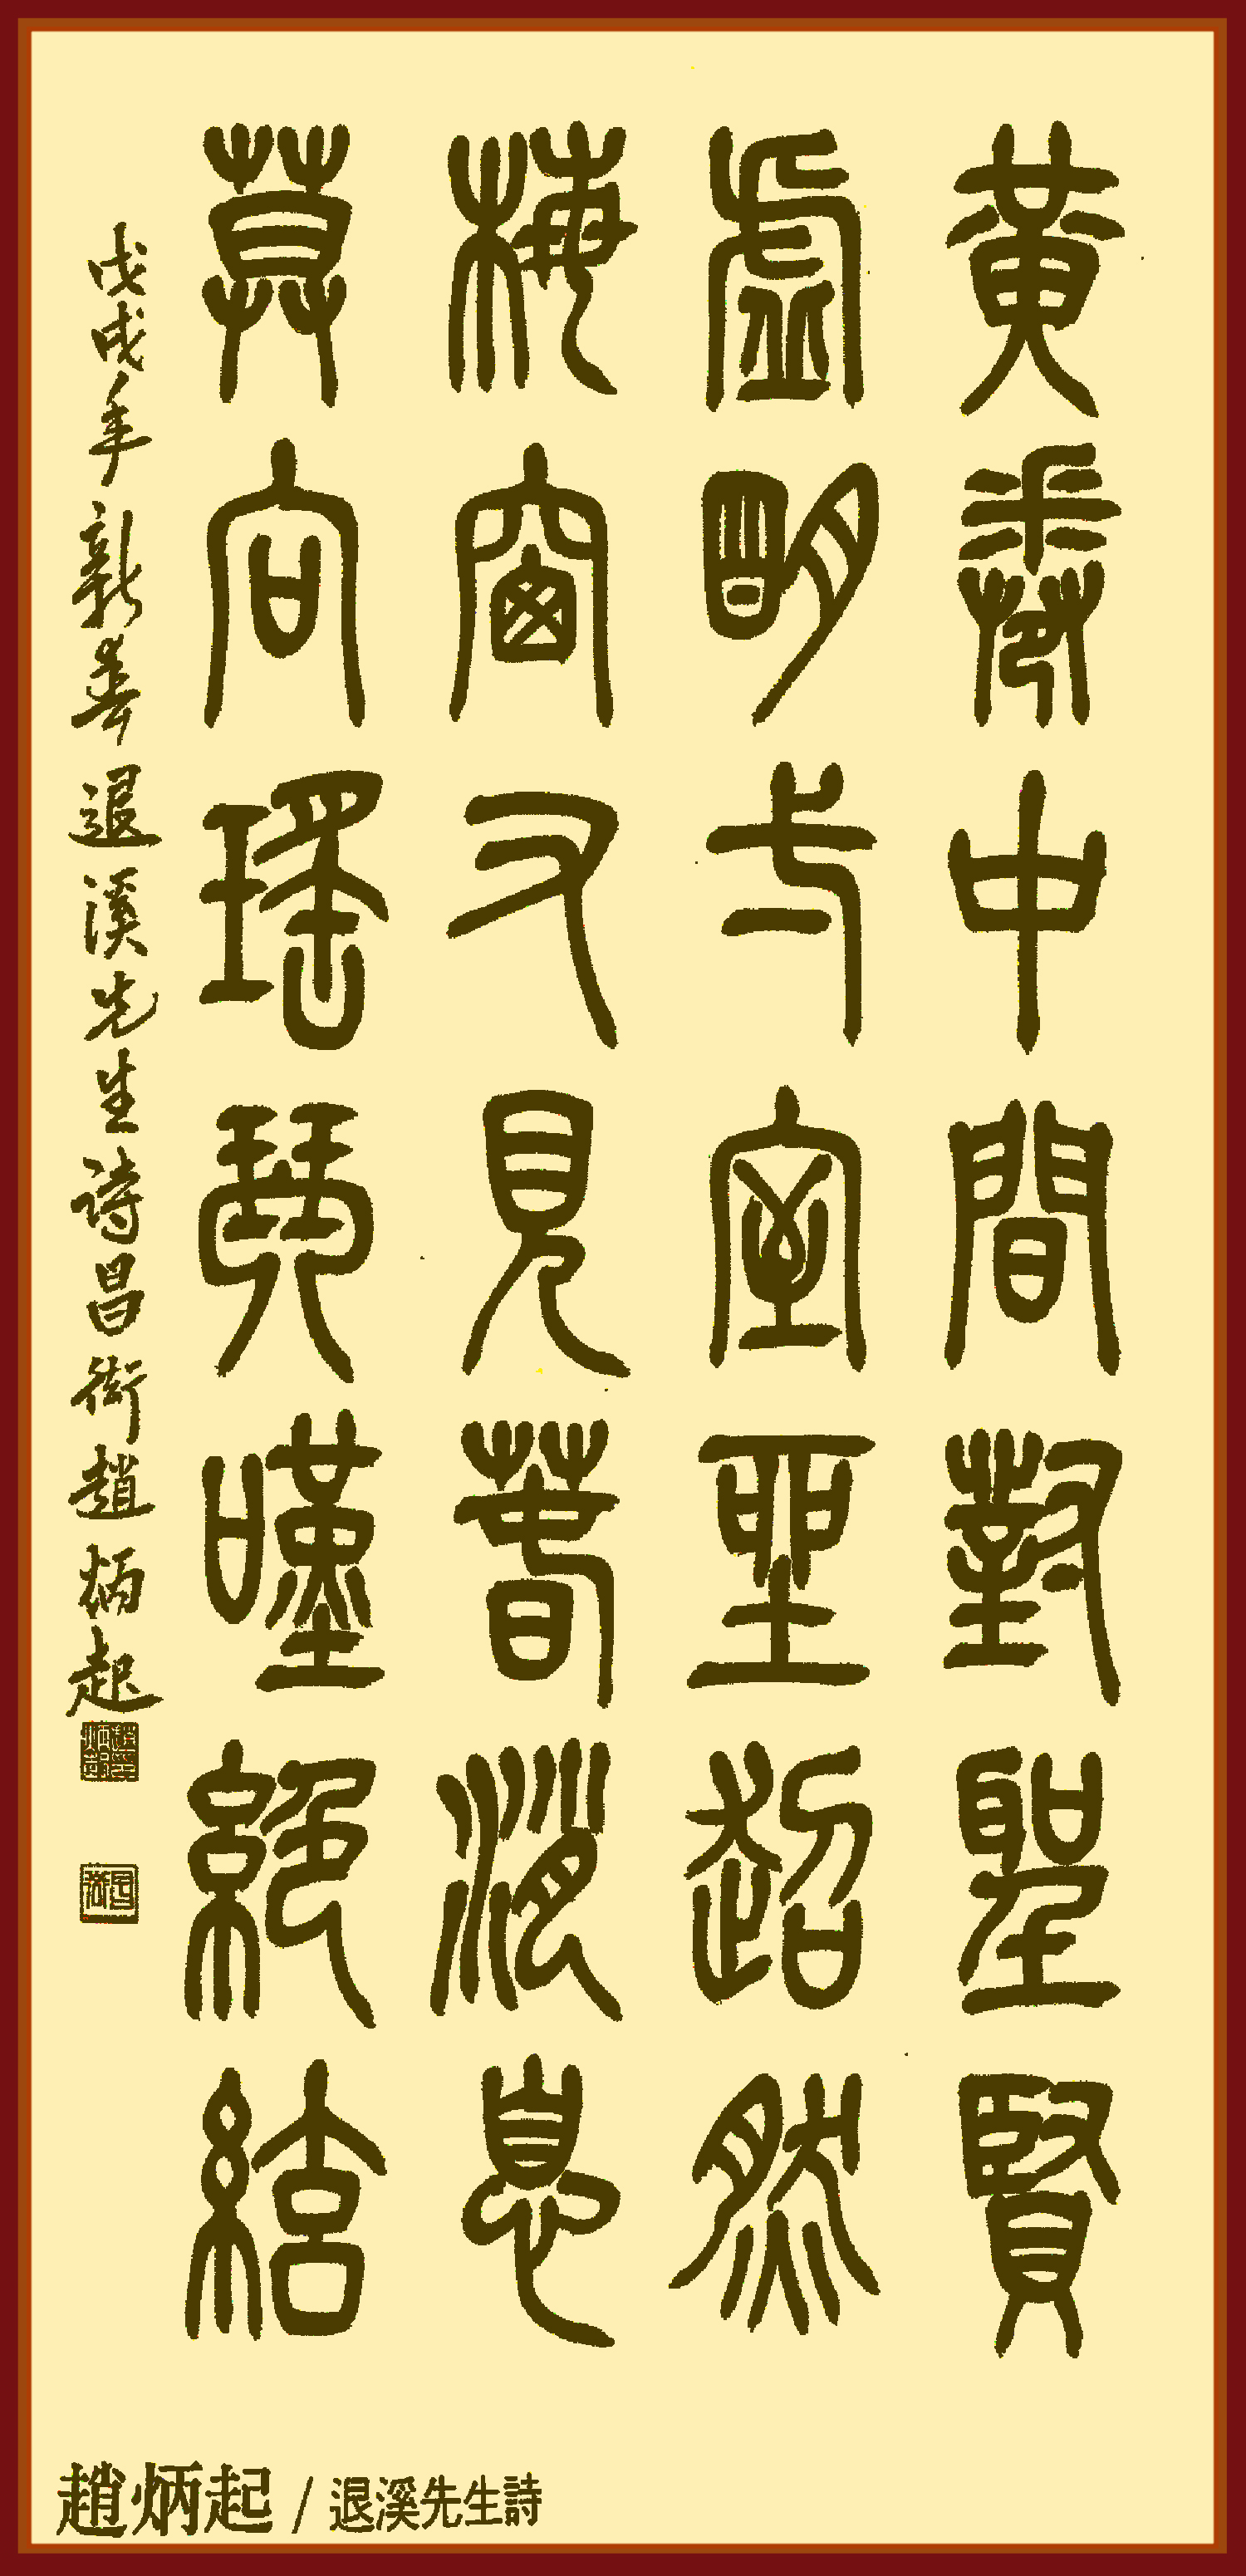 黃卷中間對聖賢
虛明一室坐超然
梅窗又見春消息
莫向瑤琴嘆絕絃
戊戌年新春退溪先生詩昌趙炳起
趙炳起 / 退溪先生詩